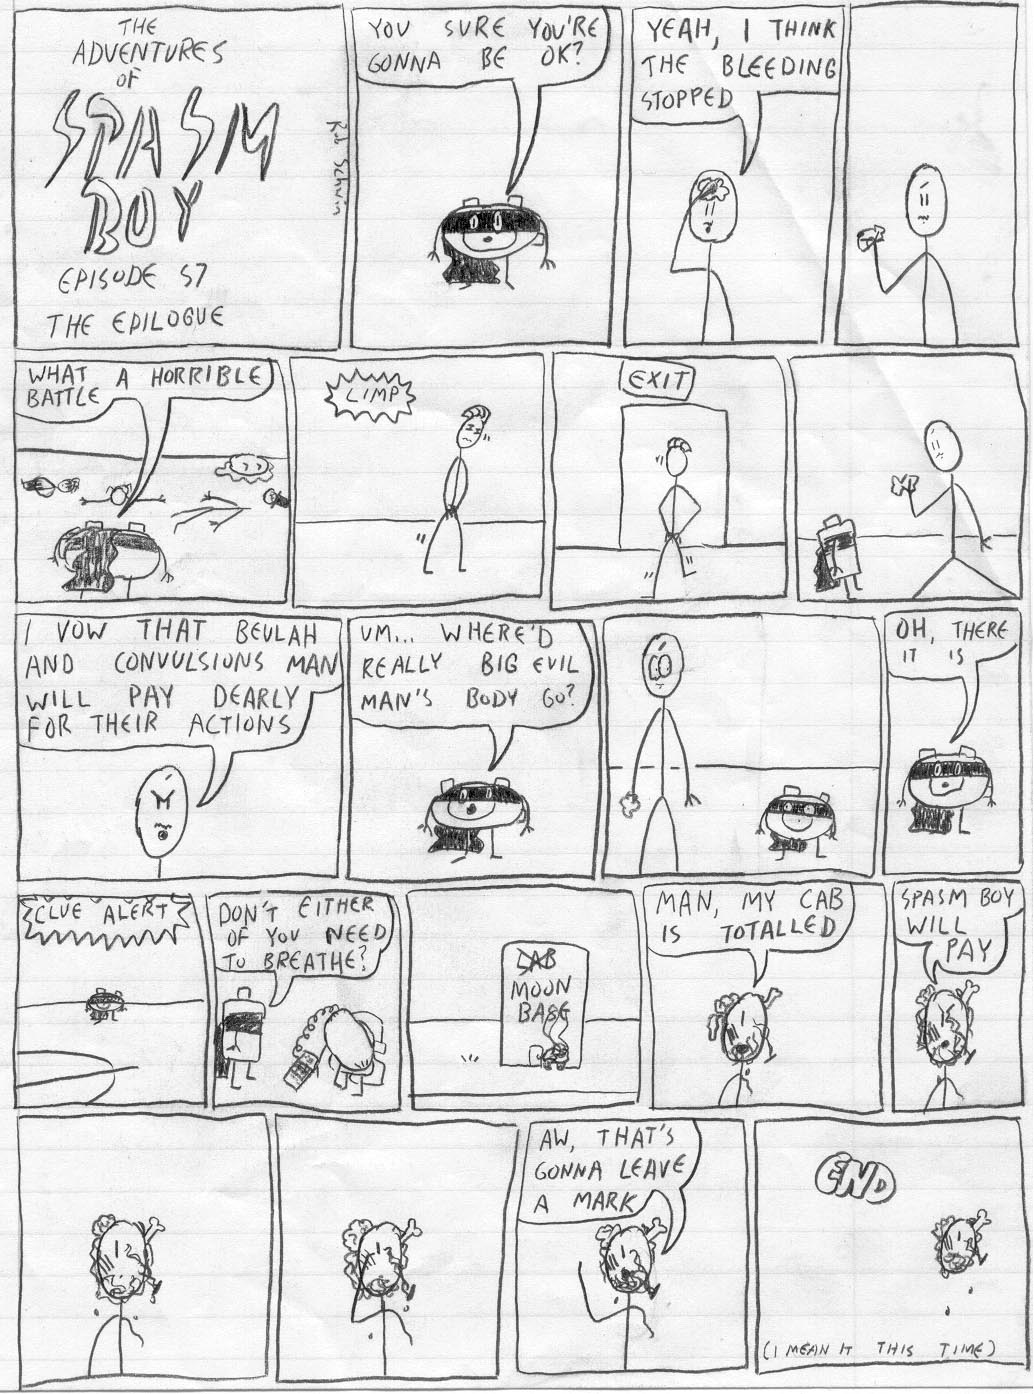 THE
ADVENTURES
OF
SPASM
BOY
EPISODE 57
THE EPILOGUE
Rob Schwin
YOU SURE YOU'RE
GONNA BE OK?
YEAH, I THINK
THE BLEEDING
STOPPED
WHAT A HORRIBLE
BATTLE
LIMP
EXIT
I VOW THAT BEULAH
AND CONVULSIONS MAN
WILL PAY DEARLY
FOR THEIR ACTIONS
UM... WHERE'D
REALLY BIG EVIL
MAN'S BODY GO?
OH, THERE
IT IS
CLUE ALERT
DON'T EITHER
OF YOU NEED
TO BREATHE?
LAB
MOON
BASE
MAN, MY CAB
IS TOTALLED
SPASM BOY
WILL
PAY
AW, THAT'S
GONNA LEAVE
A MARK
END
(I MEAN IT THIS TIME)